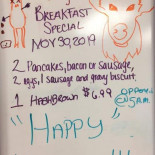 BREAKFAST
SPECIAL
NOV 30, 2019
2 Pancakes, bacon or sausage,
2 eggs, 1 sausage and gravy biscuit
1 HashBrown $6.99
"HAPPY"